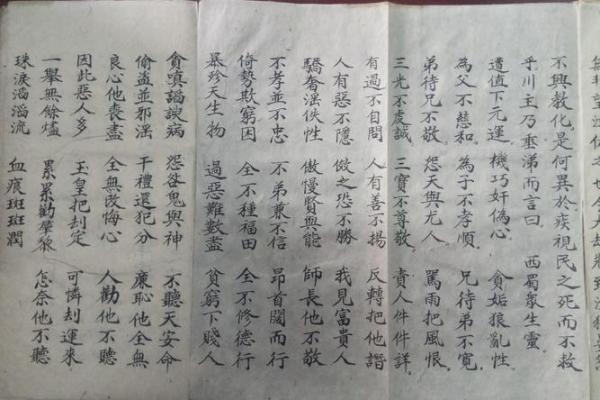 不興教化是何異於疾視民之死而不救
乎川主乃垂涕而言曰 西蜀眾生靈
遭值下元運 機巧奸偽心 貪妬狼亂性
為父不慈和 為子不孝順 兄待弟不寬
弟待兄不敬 怨天與尤人 罵雨把風恨
三光不虔誠 三寶不尊敬 責人件件詳
有過不自問 人有善不揚 反轉把他譖
人有惡不隱 做之恐不勝 我見富貴人
驕奢淫佚性 傲慢賢與能 師長他不敬
不孝並不忠 不弟兼不信 昂首闊而行
倚勢欺窮困 全不種福田 全不修德行
暴殄天生物 過惡難數盡 貧窮下賤人
貪嗔諂諛病 怨咎鬼與神 不聽天安命
偷盜並邪淫 干禮還犯分 廉恥他全無
良心他喪盡 全無改悔心 人勸他不聽
因此惡人多 玉皇把刦定 可憐刦運來
一舉無餘燼 累累勸羣黎 怎奈他不聽
珠淚滔滔流 血痕斑斑潤